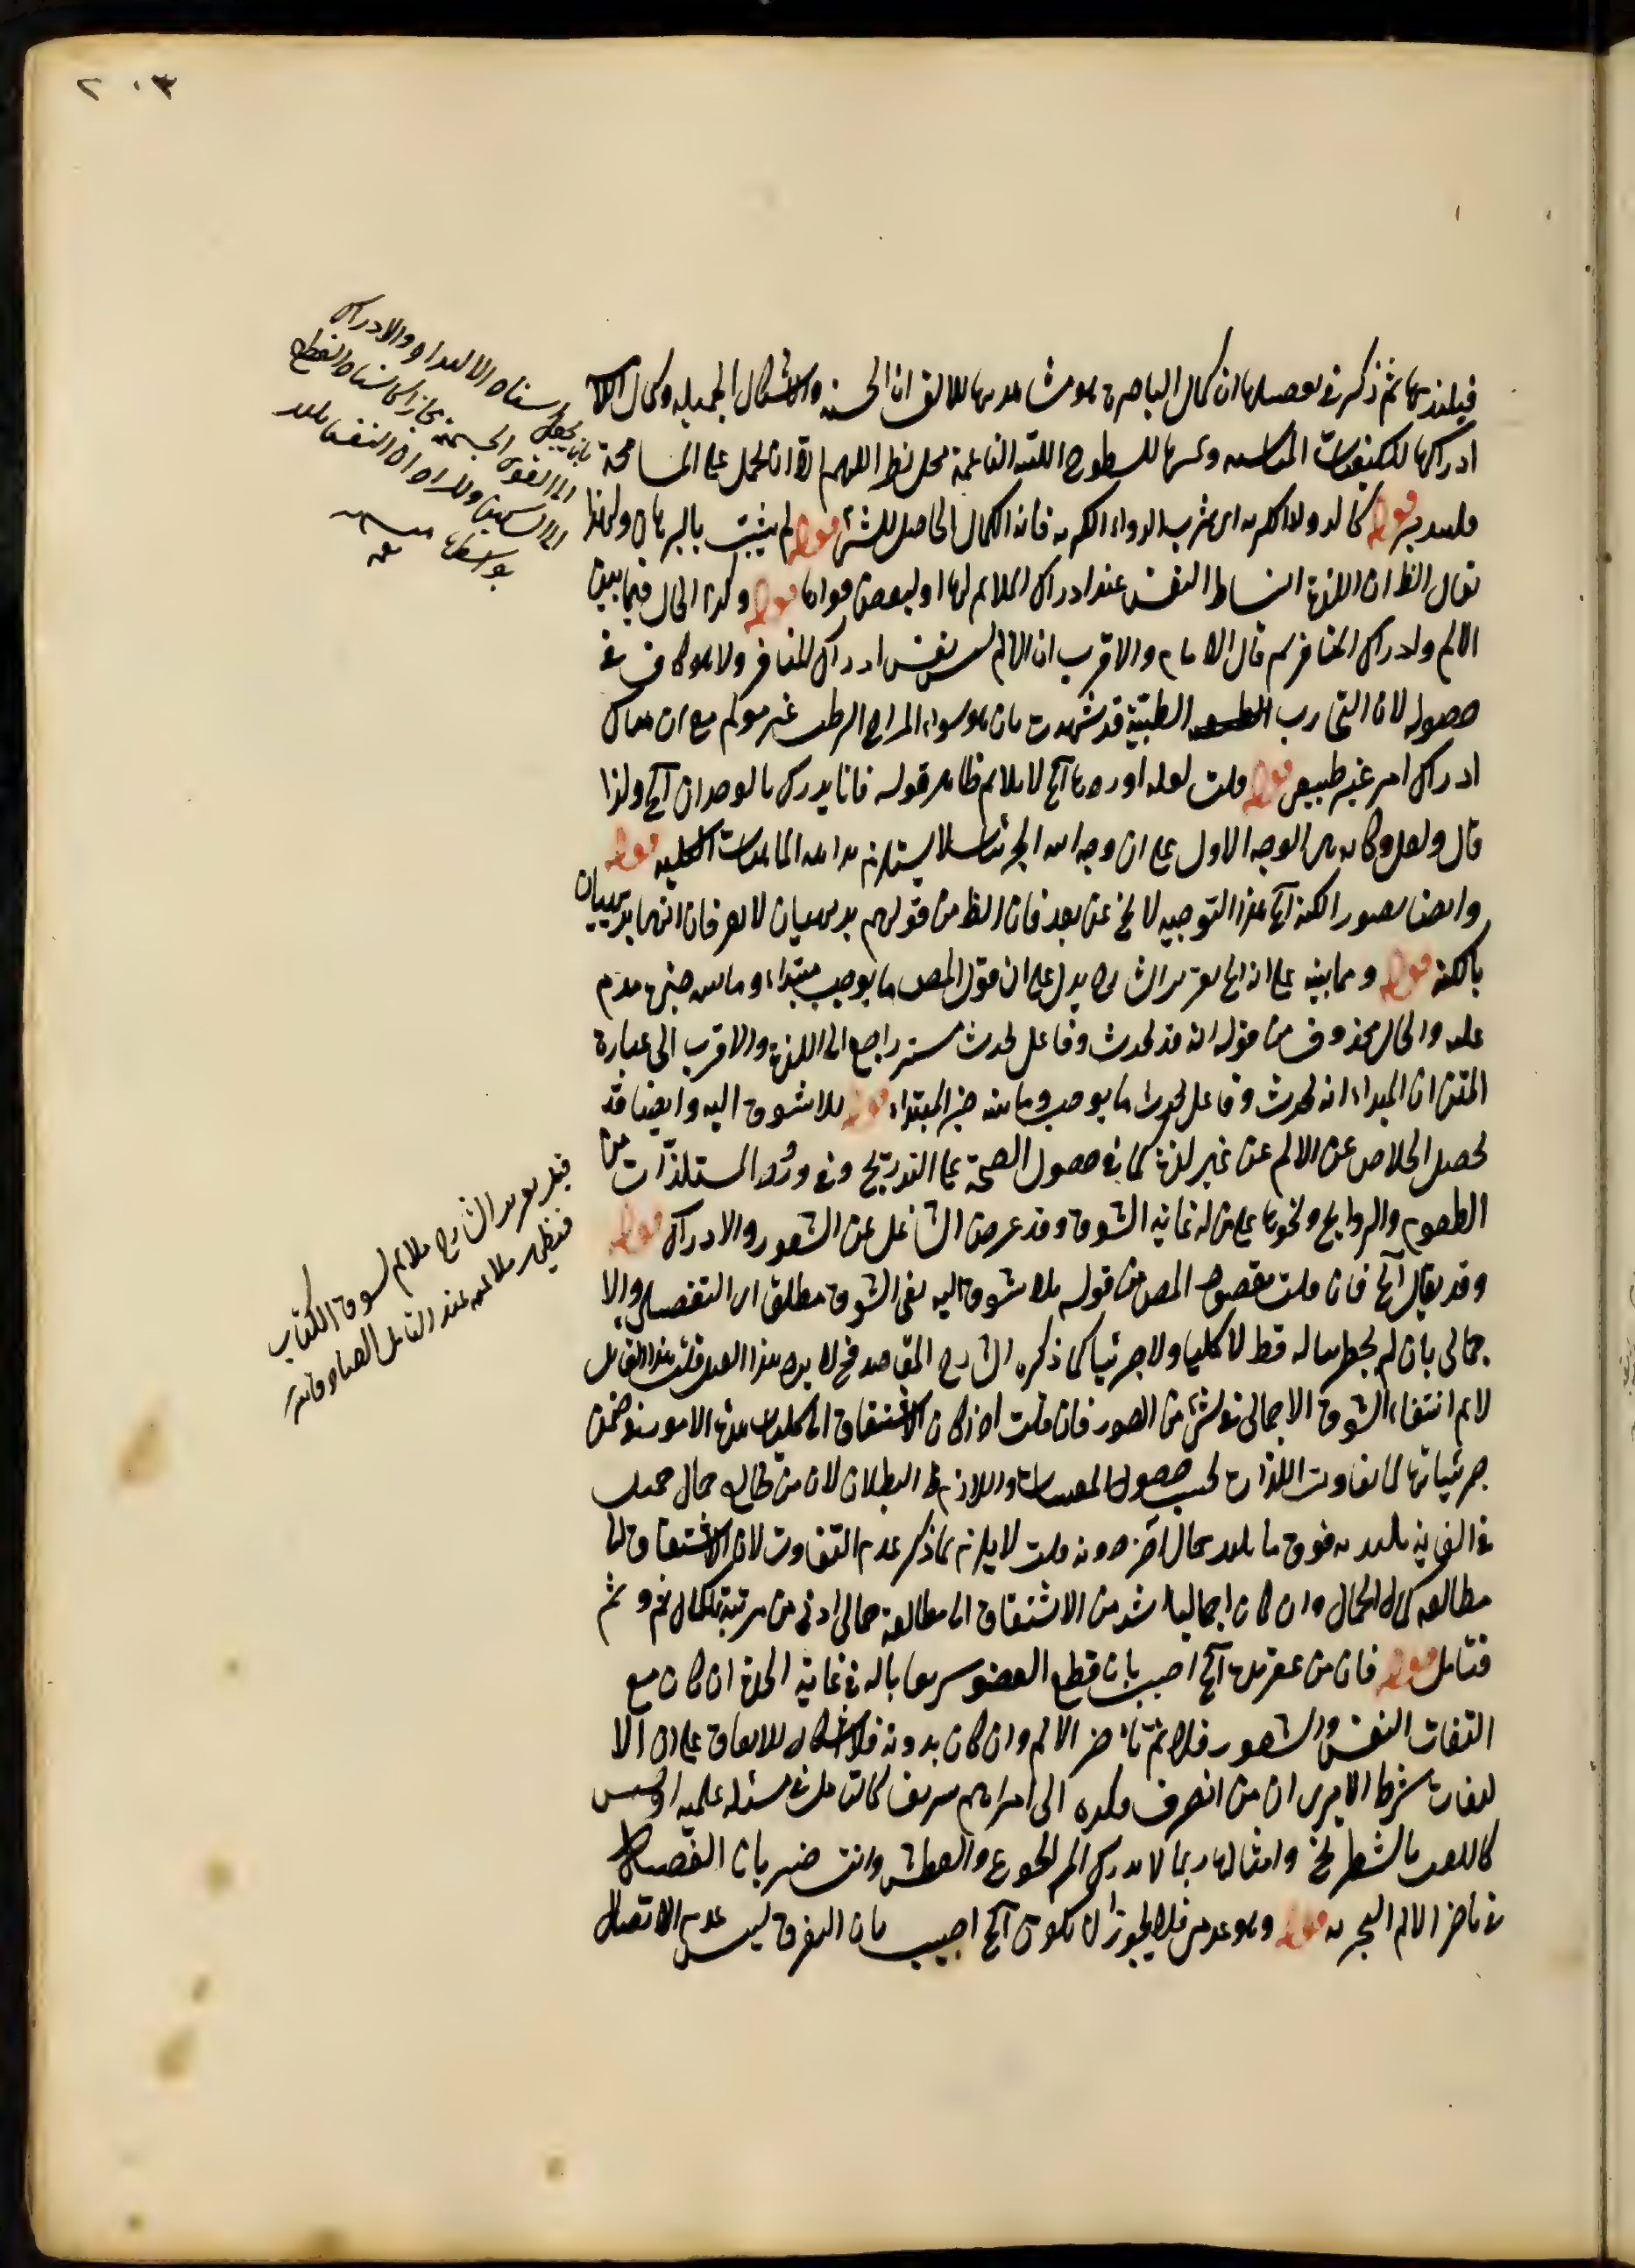 ٢٠٣
فيلتذ بها ثم ذكر في تفصيلها ان كمال الباصرة هو مشاهدتها للالوان الحسنه والاشكال الجميله وكمال اللا
ادراكها للكيفيات المناسبه ومسها للسطوح اللينه الناعمة محل نظر اللهم الا ان يحمل على المسامحة
قوله كالدواء الكريه اي شرب الدواء الكريه فانه الكمال الحاصل للشئ قوله لم يثبت بالبرهان ولهذا
يقال الظ ان اللذة انبساط النفس عند ادراك الملائم لها او لبعض قواها قوله وكذا الحال فيما بين
الالم وادراك المنافر ثم قال الامام والاقرب ان الالم ليس نفس ادراك المنافر ولا هو كاف في
حصوله لان التجارب الطبية قد شهدت بان سوء المزاج الرطب غير مولم مع ان هناك
ادراك امر غير طبيعي قوله قلت لعله اورد ما آه لا يلائم ظاهر قوله فانا ندرك بالوجدان آه ولذا
قال ولعل وكانه بنى الوجه الاول على ان وجدانية الجزئيات لا يستلزم بداهة الماهيات الكليه قوله
وايضا تصور الكنه آه هذا التوجيه لا يخ عن بعد فان الظ من قولهم بديهيان لا يعرفان انهما بديهيان
بالكنه قوله ومما ينبه على اه تقرير الشارح يدل على ان قول المص ما يوجب مبتداء وما بينه خبره مقدم
عليه والحال محذوف من قوله انه قد يحدث وفاعل يحدث مستتر راجع الى اللذة والاقرب الى عبارة
المتن ان المبتداء انه يحدث وفاعل يحدث ما يوجب وما بينه خبر المبتداء قوله بلا شوق اليه وايضا قد
يحصل الخلاص عن الالم عن غير لذة كما في حصول الصحة على التدريج وفي ورود المستلذات من
الطعوم والروايح ونحوها على من له غاية الشوق وقد عرض الشاغل عن الشعور والادراك قوله
وقد يقال آه فان قلت مقصود المص من قوله بلا شوق اليه نفي الشوق مطلقا اي التفصيلي والا
جمالي بان لم يخطر بباله قط لا كليا ولا جزئيا كما ذكره الشارح المقاصد فح لا يرد هذا القيل قلت هذا القايل
لا يم انتفاء الشوق الاجمالي في شئ من الصور فان قلت اذا كان الاشتياق الى كليات هذه الامور في ضمن
جزئياتها لما تفاوت اللذات بحسب حصول المعينات واللازم ظ البطلان لان من طالع جمال جميل
في الغاية يلتذ به فوق ما يلتذ بجمال آخر دونه قلت لا يلزم مما ذكر عدم التفاوت لان الاشتياق الى
مطالعة كمال الجمال وان كان اجماليا اشد من الاشتياق الى مطالعة جمال ادنى من مرتبة الكمال ثم وثم
فتامل قوله فان من عقر يده آه اجيب بان قطع العضو سريعا بالة في غاية الحدة ان كان مع
التفات النفس والشعور فلا ثم تاخر الالم وان كان بدونه فلا اشكال للاتفاق على ان الا
لتفات شرط الا يرى ان من انصرف فكره الى امر اهم شريف كالتامل في مسئلة علميه او خسيس
كاللعب بالشطرنج وامثالها ربما لا يدرك الم الجوع والعطش وانت خبير بان الفيصل
في تاخر الالم التجربه قوله وهو عدمي فلا يجوز ان يكون آه اجيب بان التفرق ليس عدم الاتصال
بان يجعل اسناد الالتذاذ والادراك
الى القوى الجسمية مجازا كاسناد القطع
الى السكين والمراد ان النفس يلتذ
بواسطتها منه
قيل تقرير الشارح ملائم لسوق الكتاب
فيظهر ملائمته عند التامل الصادق منه